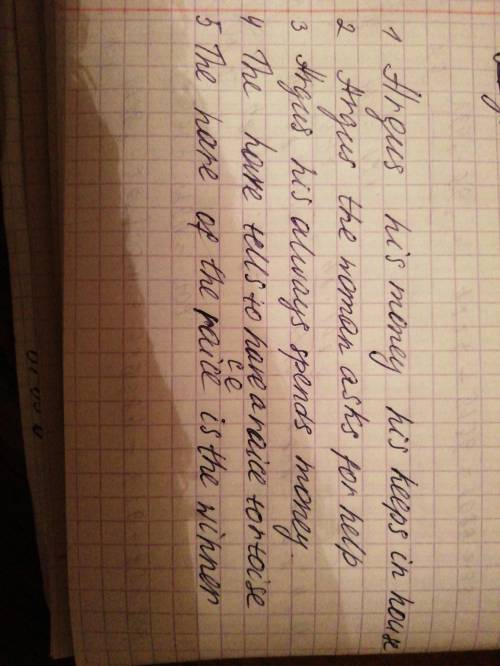 1 Argus his money his keeps in house
2 Argus the woman asks for help
3 Argus his always spends money.
4 The hare tells to have a raice tortoise
ce
5 The hare of the raice is the winner